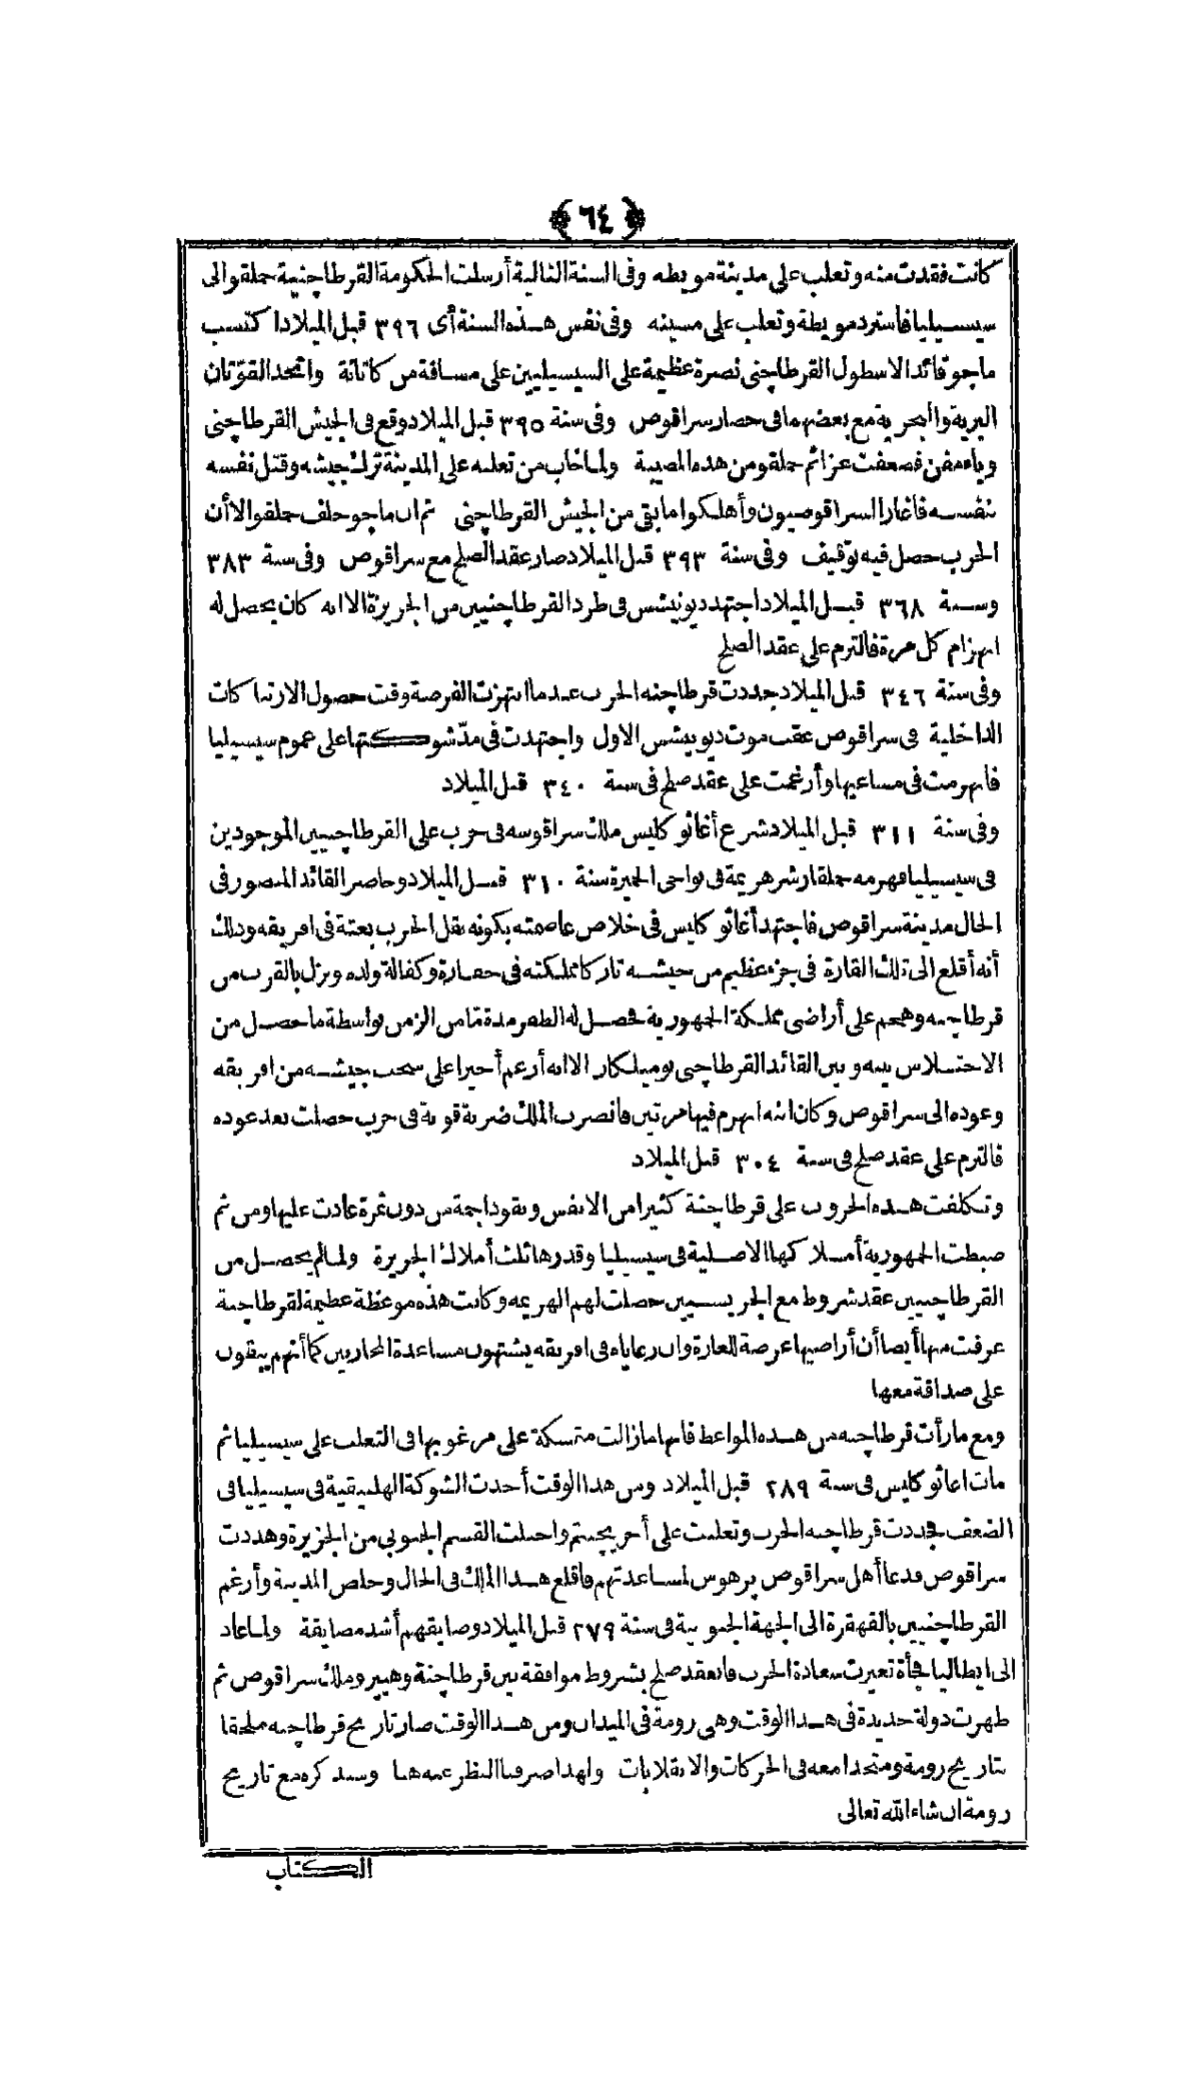 ﴿ ٦٤ ﴾
كانت فقدت منه وتغلب على مدينة موبطه وفى السنة التالية أرسلت الحكومة القرطاجنية حملقو الى
سيسيليا فاسترد موبطة وتغلب على مسينه وفى نفس هذه السنة أى ٣٩٦ قبل الميلاد اكتسب
ماجو قائد الاسطول القرطاجنى نصرة عظيمة على السيسيليين على مسافة من كاتانة واتحد القوّتان
البرية والبحرية مع بعضهما فى حصار سراقوص وفى سنة ٣٩٥ قبل الميلاد وقع فى الجيش القرطاجنى
وباء مفن فضعفت عزائم حملقو من هذه المصيبة ولما خاب من تغلبه على المدينة ترك جيشه وقتل نفسه
بنفسه فأغار السراقوصيون وأهلكوا ما بقى من الجيش القرطاجنى ثم ان ماجو خلف حملقو الا أن
الحرب حصل فيه توقيف وفى سنة ٣٩٣ قبل الميلاد صار عقد الصلح مع سراقوص وفى سنة ٣٨٣
وسنة ٣٦٨ قبل الميلاد اجتهد ديونيشس فى طرد القرطاجنيين من الجزيرة الا انه كان يحصل له
انهزام كل مرة فالتزم على عقد الصلح
وفى سنة ٣٤٦ قبل الميلاد جددت قرطاجنه الحرب عندما انتهزت الفرصة وقت حصول الارتباكات
الداخلية فى سراقوص عقب موت ديونيشس الاول واجتهدت فى مدّ شوكتها على عموم سيسيليا
فانهزمت فى مساعيها وأرغمت على عقد صلح فى سنة ٣٤٠ قبل الميلاد
وفى سنة ٣١١ قبل الميلاد شرع أغاثوكليس ملك سراقوسه فى حرب على القرطاجنيين الموجودين
فى سيسيليا فهزمه حملقار شر هزيمة فى نواحى الحميرة سنة ٣١٠ قبل الميلاد وحاصر القائد المنصور فى
الحال مدينة سراقوص فاجتهد أغاثوكليس فى خلاص عاصمته بكونه نقل الحرب بغتة فى افريقه وذلك
أنه أقلع الى تلك القارة فى جزء عظيم من جيشه تاركا مملكته فى حصارة وكفالة ولده ونزل بالقرب من
قرطاجنه وهجم على أراضى مملكة الجمهورية فحصل له الظفر مدة ما من الزمن بواسطة ما حصل من
الاختلاس بينه وبين القائد القرطاجنى بوميلكار الا انه أرغم أخيرا على سحب جيشه من افريقه
وعوده الى سراقوص وكان ابنه انهزم فيها مرتين فانصرب الملك ضربة قوية فى حرب حصلت بعد عوده
فالتزم على عقد صلح فى سنة ٣٠٤ قبل الميلاد
وتكلفت هذه الحروب على قرطاجنة كثيرا من الانفس ونقودا جمة من دون ثمرة عادت عليها ومن ثم
ضبطت الجمهورية أملاكها الاصلية فى سيسيليا وقدرها ثلث أملاك الجزيرة ولما لم يحصل من
القرطاجنيين عقد شروط مع الحريسيين حصلت لهم الهزيمه وكانت هذه موعظة عظيمة لقرطاجنة
عرفت منها أيضا أن أراضيها عرضة للغارة وان رعاياه فى افريقه يشتهون مساعدة المحاربين كما أنهم يبقون
على صداقة معها
ومع ما رأت قرطاجنه من هذه المواعظ فانها ما زالت متمسكة على مرغوبها فى التغلب على سيسيليا ثم
مات اغاثوكليس فى سنة ٢٨٩ قبل الميلاد ومن هذا الوقت أخذت الشوكة الهلينيقية فى سيسيليا فى
الضعف فجددت قرطاجنه الحرب وتغلبت على أجريجنتم واحتلت القسم الجنوبى من الجزيرة وهددت
سراقوص فدعا أهل سراقوص پرهوس لمساعدتهم فأقلع هذا الملك فى الحال وخلص المدينة وأرغم
القرطاجنيين بالقهقرة الى الجهة الجنوبية فى سنة ٢٧٩ قبل الميلاد وضايقهم أشد مضايقة ولما عاد
الى ايطاليا فجأة تغيرت سعادة الحرب فانعقد صلح بشروط موافقة بين قرطاجنة وهييرو ملك سراقوص ثم
ظهرت دولة جديدة فى هذا الوقت وهى رومة فى الميدان ومن هذا الوقت صار تاريخ قرطاجنه ملحقا
بتاريخ رومة ومتحدا معه فى الحركات والانقلابات ولهذا صرفنا النظر عنه هنا وسنذكره مع تاريخ
رومة ان شاء الله تعالى
الكتاب